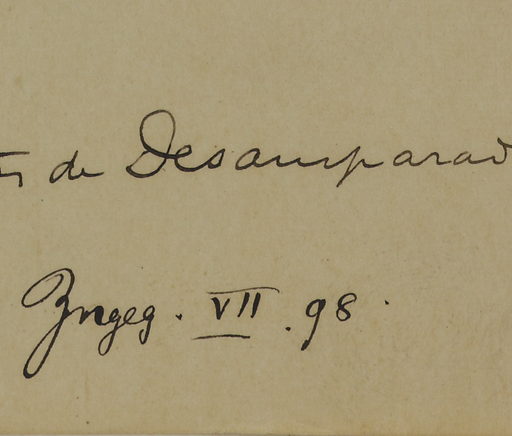 de Desamparad
Ingeg. VII. 98.